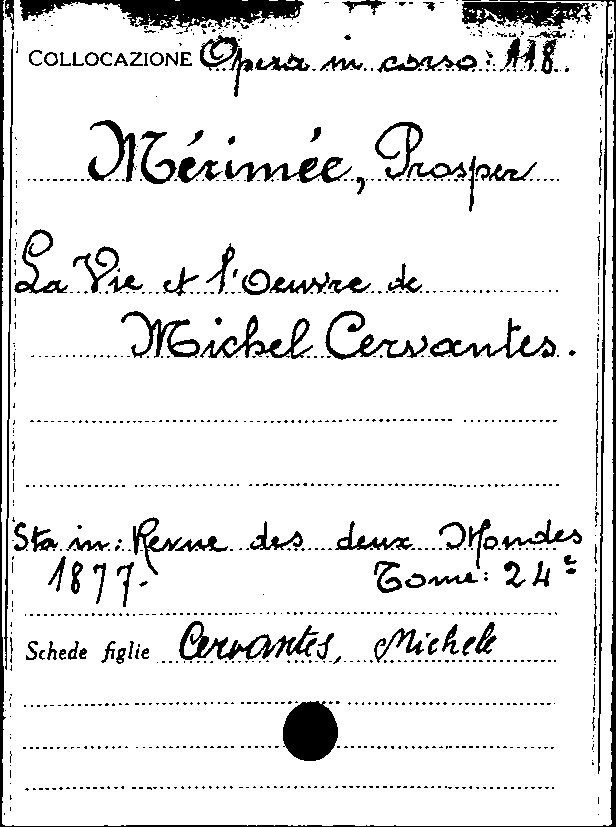 COLLOCAZIONE Opera in corso: 118.
Mérimée, Prosper
La Vie et l'Oeuvre de
Michel Cervantes.
Sta in: Revue des deux Mondes
1877- Tome: 24e
Schede figlie Cervantes, Michele